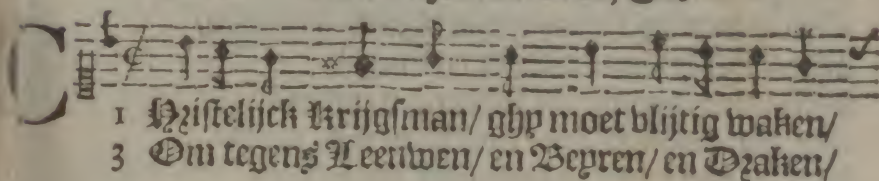 C
1 Hristelijck Krijgsman/ ghy moet vlijtig waken/
3 Om tegens Leeuwen/ en Beyren/ en Draken/